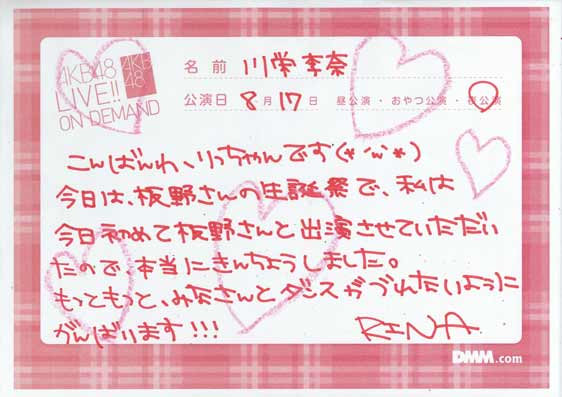 AKB48
LIVE!!
ON DEMAND
AKB
48
名前 川栄李奈
公演日 8月17日 昼公演・おやつ公演・夜公演
こんばんわ、りっちゃんです(*´ω`*)
今日は、板野さんの生誕祭で、私は
今日初めて板野さんと出演させていただい
たので、本当にきんちょうしました。
もっともっと、みなさんとダンスがづれたいように
がんばります!!!
RINA
DMM.com